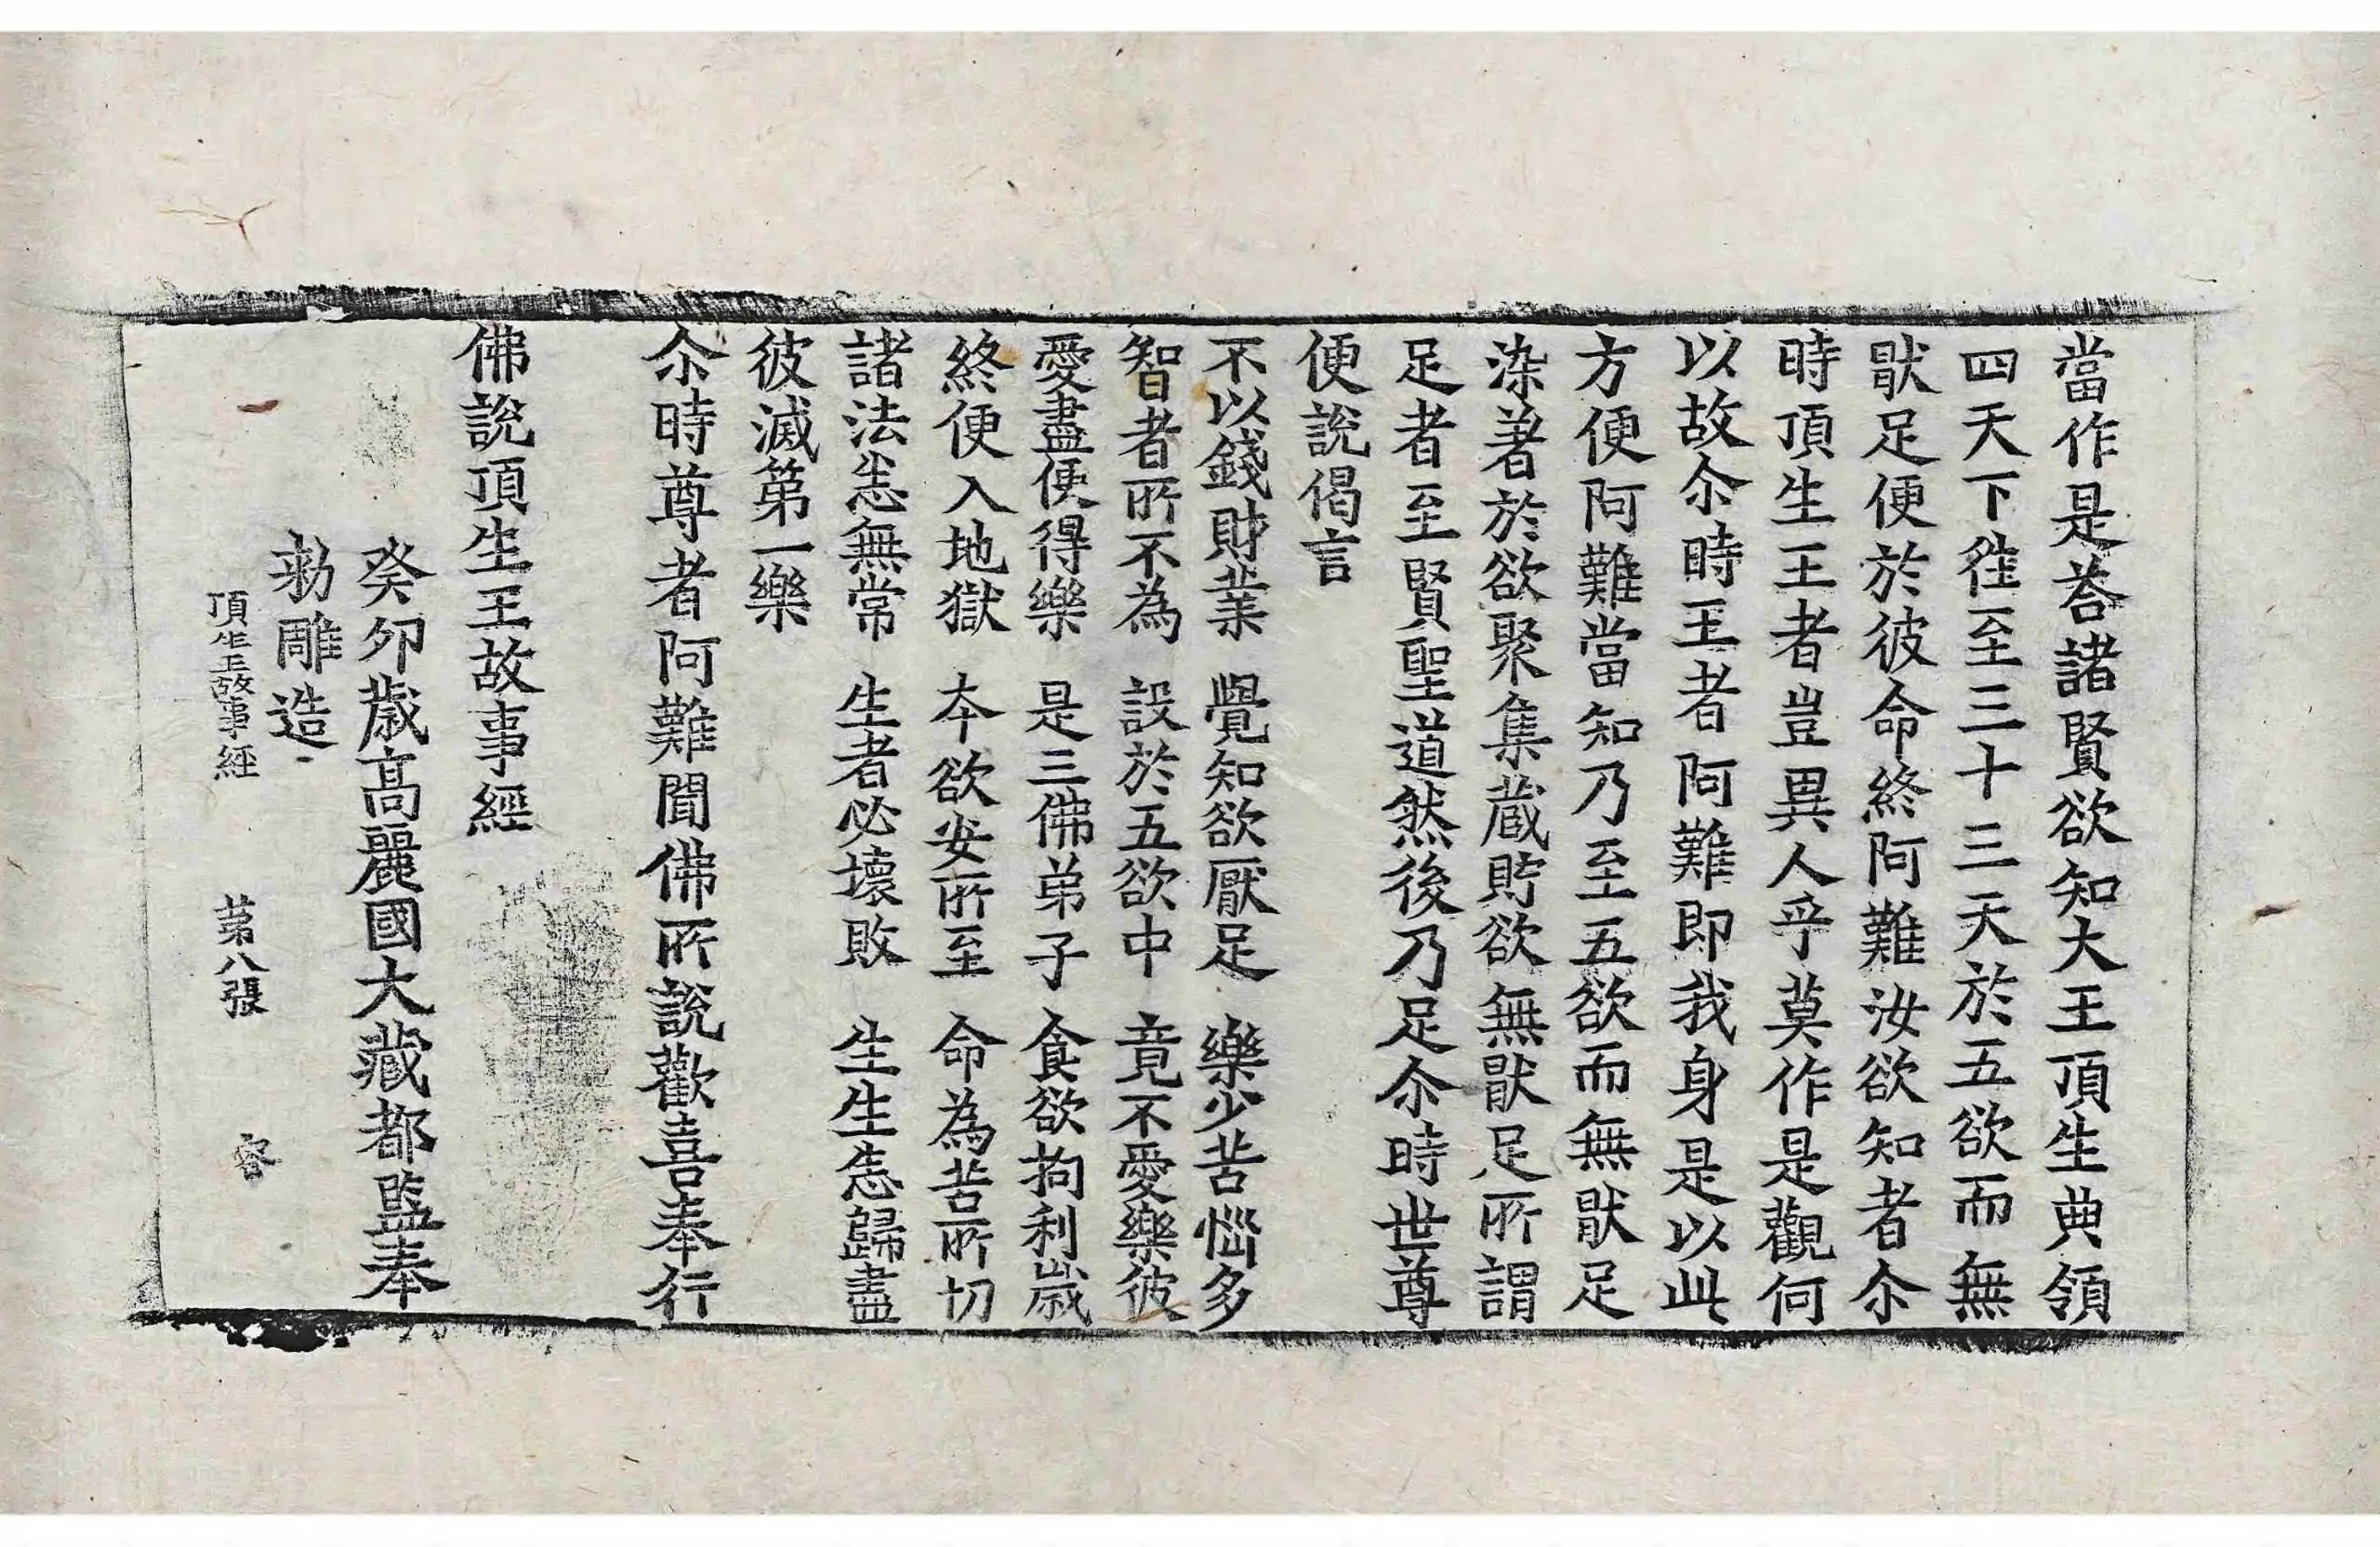 當作是荅諸賢欲知大王頂生典領
四天下徃至三十三天於五欲而無
猒足便於彼命終阿難汝欲知者尒
時頂生王者豈異人乎莫作是觀何
以故尒時王者阿難即我身是以此
方便阿難當知乃至五欲而無猒足
染著於欲聚集蔵貯欲無猒足所謂
足者至賢聖道然後乃足尒時世尊
便說偈言
不以錢財業 覺知欲厭足 樂少苦惱多
智者所不為 設於五欲中 竟不愛樂彼
愛盡便得樂 是三佛弟子 食欲拘利歲
終便入地獄 本欲安所至 命為苦所切
諸法恙無常 生者必壞敗 生生恙歸盡
彼滅第一樂
尒時尊者阿難聞佛所說歡喜奉行
佛說頂生王故事經
癸卯歲高麗國大藏都監奉
勑雕造
頂生王故事經 第八張 容